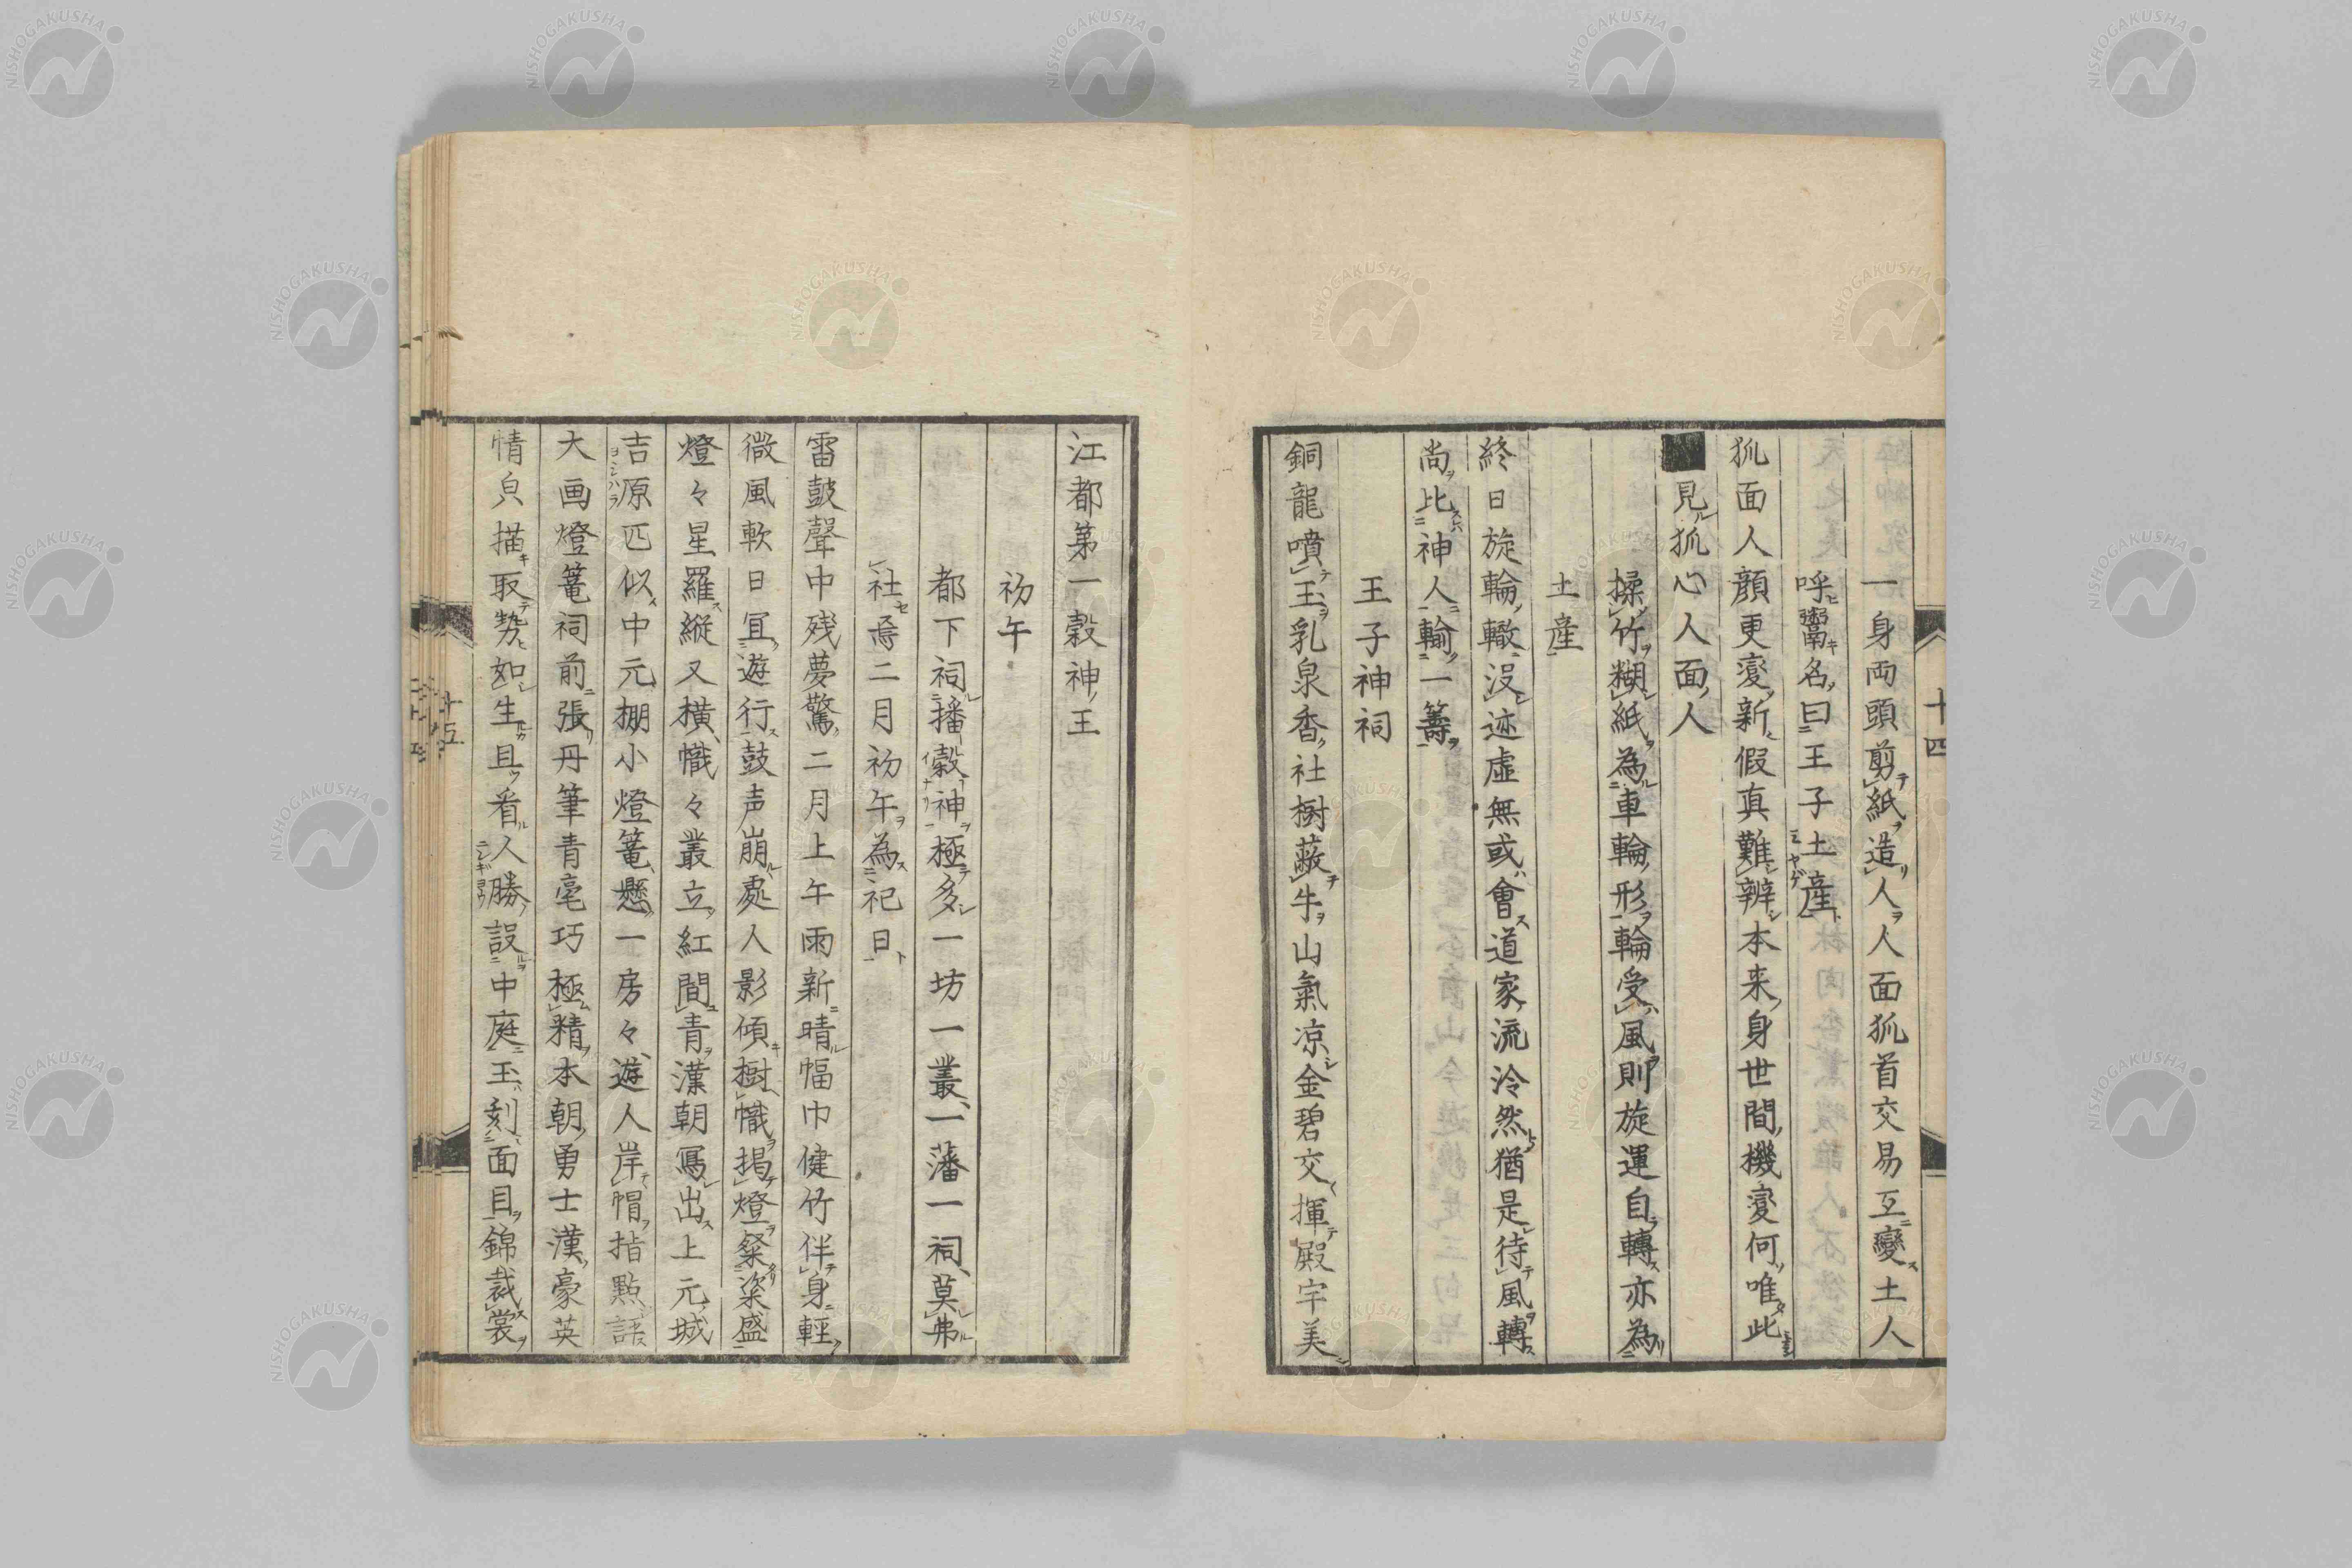 一身両頭剪紙造人人面狐首交易互變土人
呼鬻名曰王子土産
狐面人顔更変新假真難辨本来身世間機変何唯此
見狐心人面人
操竹糊紙為車輪形輪受風則旋運自轉亦為
土産
終日旋輪轍没迹虚無或會道家流泠然猶是待風轉
尚比神人輸一籌
王子神祠
銅龍噴玉乳泉香社樹蔽牛山氣凉金碧交揮殿宇美
江都第一穀神王
初午
都下祠播穀神極多一坊一叢一藩一祠莫弗
社焉二月初午為祀日
雷鼓聲中残夢驚二月上午雨新晴幅巾健竹伴身軽
微風軟日宜遊行鼓声崩處人影傾樹幟掲燈粢盛
燈々星羅縦又横幟々叢立紅間青漢朝寫出上元城
吉原匹似中元棚小燈篭懸一房々遊人岸帽指點話
大画燈篭祠前張丹筆青毫巧極精本朝勇士漢豪英
情皃描取勢如生且看人勝設中庭玉刻面目錦裁裳
十四
十五
NISHOGAKUSHA